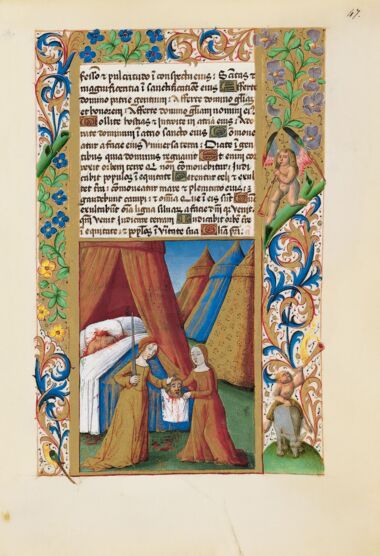 47.
fessio et pulcritudo i conspectu eius: Scitas et
magnificentia i sanctificatiõe eius Afferte
domino patrie gentium: Afferte domino gliam
et honorem: Afferte domino gliam nomini ei9
Tollite hostias et introite in atria eius: Ado
rate dominum i atrio sancto eius Cõmoue
atur a facie eius Vniversa terra: Dicite i gen
tibus quia dominus regnauit Et enim cor
rexit orbem terre qui non cõmouebitur: Iudi
cabit populos i equitate Letentur celi et exul
tet terra: cõmoueatur mare et plenitudo eius:
gaudebunt campi: et omnia que i eis sunt
exultabũt omnia ligna siluarum a facie dni quia venit
qm venit iudicare terram Iudicabit orbẽ ter
re i equitate: et poplos i ueritate sua Glia pri.